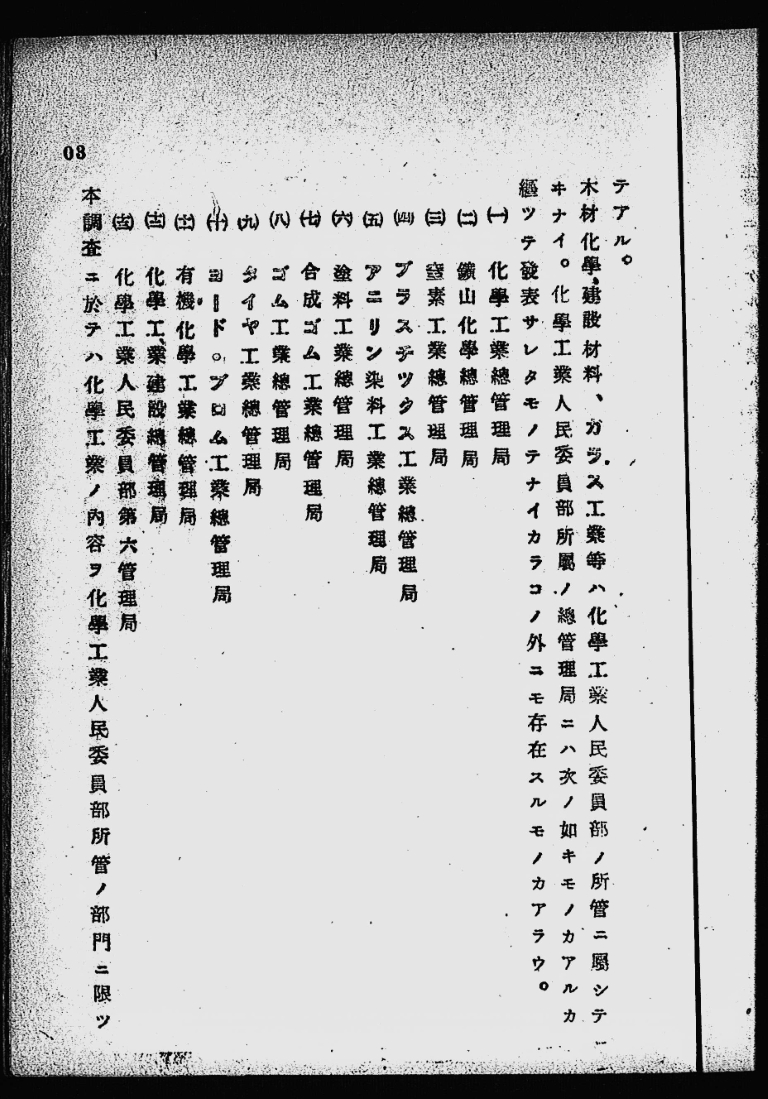 テアル。
木材化學、建設材料、ガラス工業等ハ化學工業人民委員部ノ所管ニ屬シテ
ヰナイ。化學工業人民委員部所屬ノ總管理局ニハ次ノ如キモノカアルカ
纒ツテ發表サレタモノテナイカラコノ外ニモ存在スルモノカアラウ。
㈠ 化學工業總管理局
㈡ 鑛山化學總管理局
㈢ 窒素工業總管理局
㈣ プラスチツクス工業總管理局
㈤ アニリン染料工業總管理局
㈥ 塗料工業總管理局
㈦ 合成ゴム工業總管理局
㈧ ゴム工業總管理局
㈨ タイヤ工業總管理局
㈩ ヨード。ブロム工業總管理局
(十一) 有機化學工業總管理局
(十二) 化學工業建設總管理局
(十三) 化學工業人民委員部第六管理局
本調査ニ於テハ化學工業ノ內容ヲ化學工業人民委員部所管ノ部門ニ限ツ
03